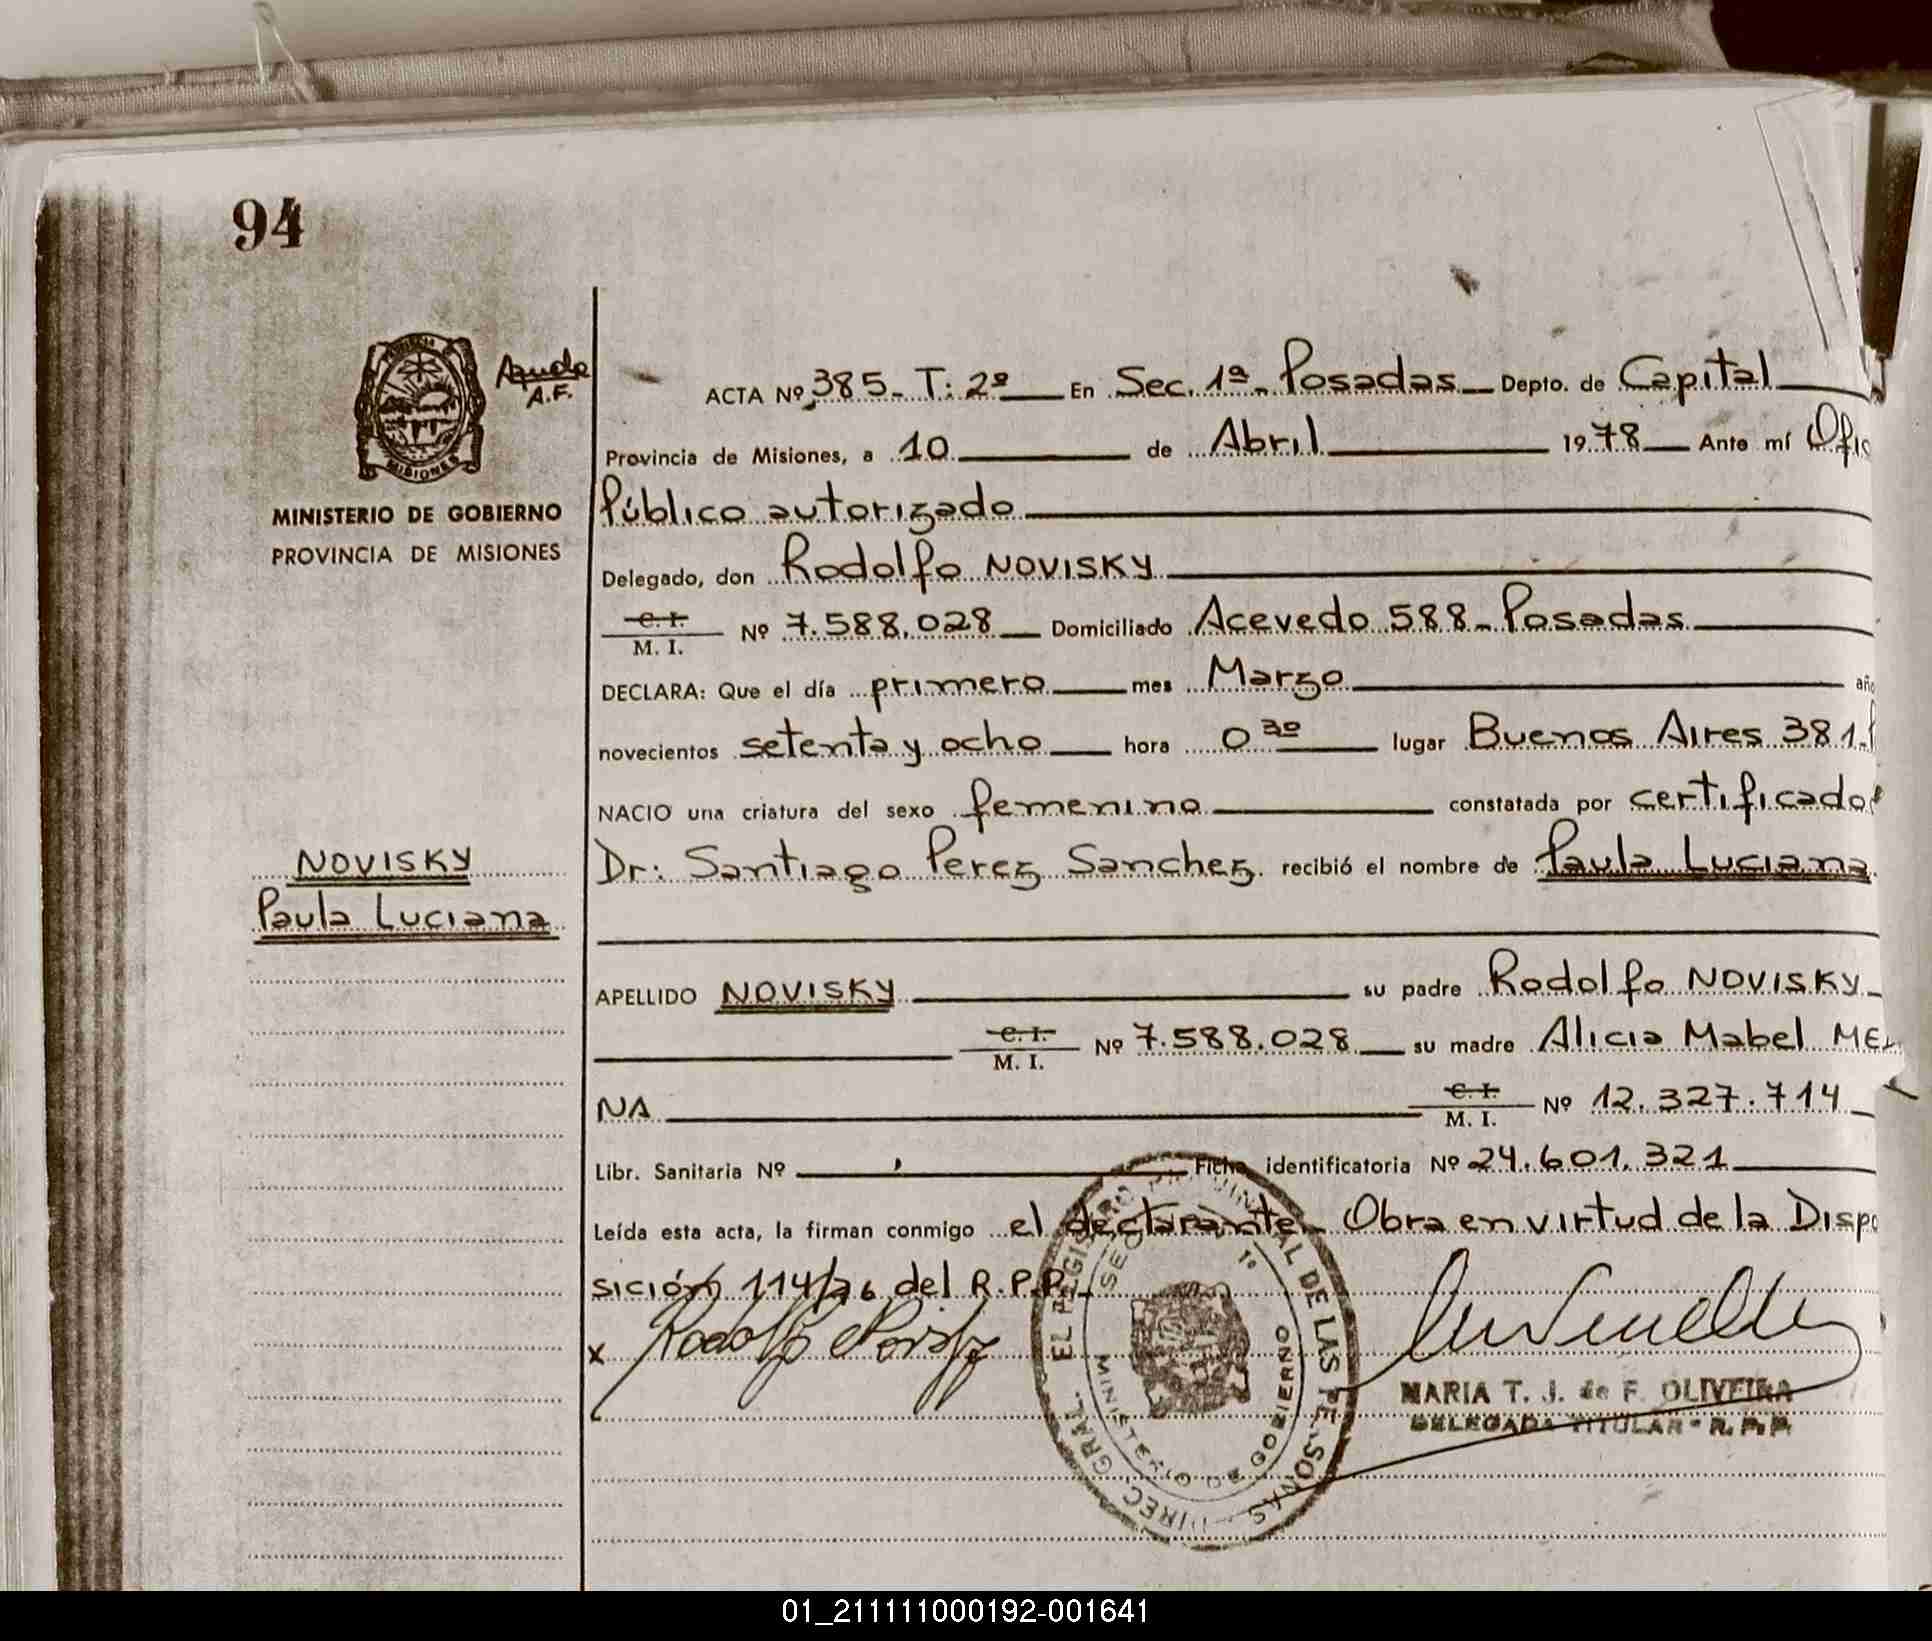 94
PROVINCIA
MISIONES
A.F.
MINISTERIO DE GOBIERNO
PROVINCIA DE MISIONES
NOVISKY
Paula Luciana
ACTA Nº 385 - T: 2º En Sec. 1ª - Posadas - Depto. de Capital
Provincia de Misiones, a 10 de Abril 1978 Ante mí Ofic
Público autorizado
Delegado, don Rodolfo NOVISKY
C. I.
M. I. Nº 7.588.028 Domiciliado Acevedo 588 - Posadas
DECLARA: Que el día primero mes Marzo año
novecientos setenta y ocho hora 0 30 lugar Buenos Aires 381 -
NACIO una criatura del sexo femenino constatada por certificado
Dr: Santiago Perez Sanchez recibió el nombre de Paula Luciana
APELLIDO NOVISKY su padre Rodolfo NOVISKY -
C. I.
M. I. Nº 7.588.028 su madre Alicia Mabel ME
NA C. I.
M. I. Nº 12.327.714
Libr. Sanitaria Nº Ficha identificatoria Nº 24.601.321
Leída esta acta, la firman conmigo el declarante - Obra en virtud de la Dispo
sición 114/76 del R.P.P. -
x Rodolfo Novisky
MARIA T. J. de F. OLIVEIRA
DELEGADA TITULAR - R. P. P.
DIREC. GRAL. EL REGISTRO PROVINCIAL DE LAS PERSONAS
MINISTERIO DE GOBIERNO
SEC 1º
01_211111000192-001641